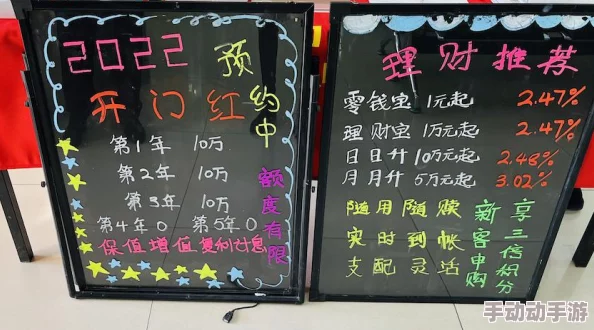 2022 预约中
开门红
第1年 10万
第2年 10万
第3年 10万
第4年0 第5年0
保值增值复利计息
额度有限
理财推荐
零钱宝 1元起 2.47%
理财宝 1万元起 2.47%
日日升 10万元起 2.48%
月月升 5万元起 3.02%
随用随赎
实时到帐
支配灵活
新客申购
享三倍积分
手动动手游